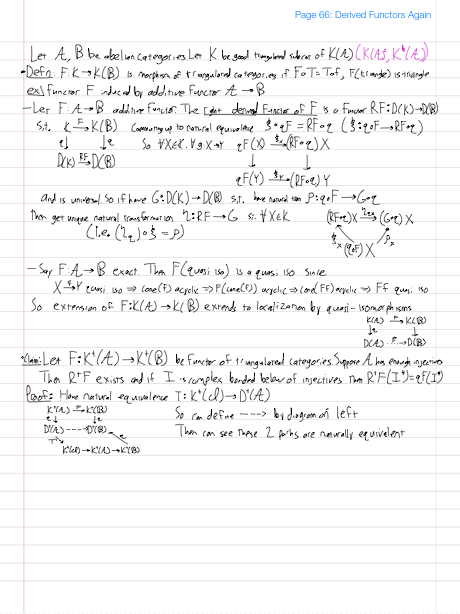 Page 66: Derived Functors Again
Let A, B be abelian categories. Let K be good triangulated subcat of K(A) (K(A), K^b(A))
• Defn: F: K → K(B) is morphism of triangulated categories if F∘T = T∘F, F(triangle) is triangle
ex) functor F induced by additive functor A → B
– Let F: A → B additive functor. The right derived functor of F is a functor RF: D(K) → D(B)
s.t. K →F K(B) commuting up to natural equivalence ξ: q∘F = RF∘q (ξ: q∘F → RF∘q)
q↓ ↓q So ∀X∈K, ∀g: X→Y qF(X) →ξx (RF∘q) X
D(K) →RF D(B) ↓ ↓
qF(Y) →ξY (RF∘q) Y
and is universal. So if have G: D(K) → D(B) s.t. have natural tran ρ: q∘F → G∘q
Then get unique natural transformation η: RF → G s.t. ∀X∈K (RF∘q) X →ηqx (G∘q) X
(i.e. (ηq)∘ξ = ρ) ξx ρx
(q∘F) X
– Say F: A → B exact. Then F(quasi iso) is a quasi iso since
X →f Y quasi iso ⇒ cone(f) acyclic ⇒ F(cone(f)) acyclic ⇒ cone(Ff) acyclic ⇒ Ff quasi iso
So extension of F: K(A) → K(B) extends to localization by quasi-isomorphisms
K(A) →F K(B)
↓q ↓q
D(A) →F D(B)
• Claim: Let F: K⁺(A) → K⁺(B) be functor of triangulated categories. Suppose A has enough injectives
Then R⁺F exists and if I is complex bounded below of injectives then R⁺F(I•) = qF(I•)
Proof: Have natural equivalence T: K⁺(cl) → D⁺(A)
K⁺(A) →F K⁺(B) So can define ----> by diagram on left
q↓ ↓q
D⁺(A) ----> D⁺(B) Then can see these 2 paths are naturally equivalent
T q
K⁺(cl) → K⁺(A) → K⁺(B)